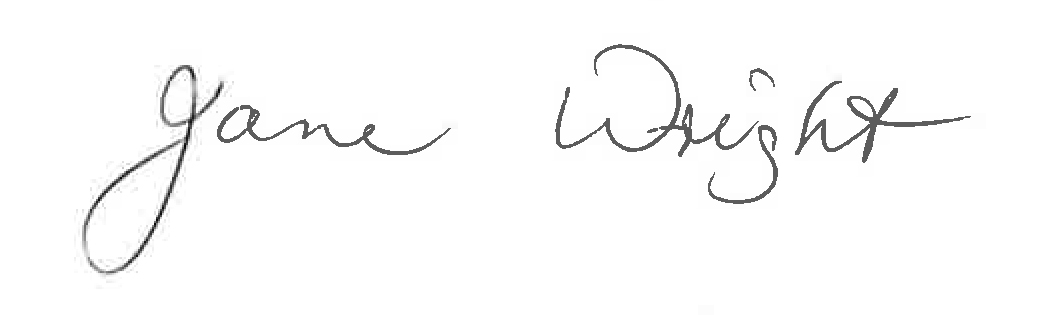 Jane Wright